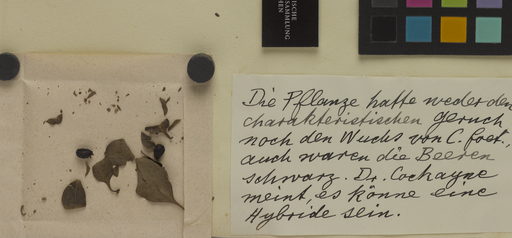 ISCHE
SAMMLUNG
HEN
Die Pflanze hatte weder den
charakteristischen geruch
noch den Wuchs von C. foet.,
auch waren die Beeren
schwarz. Dr. Cockayne
meint, es könne eine
Hybride sein.